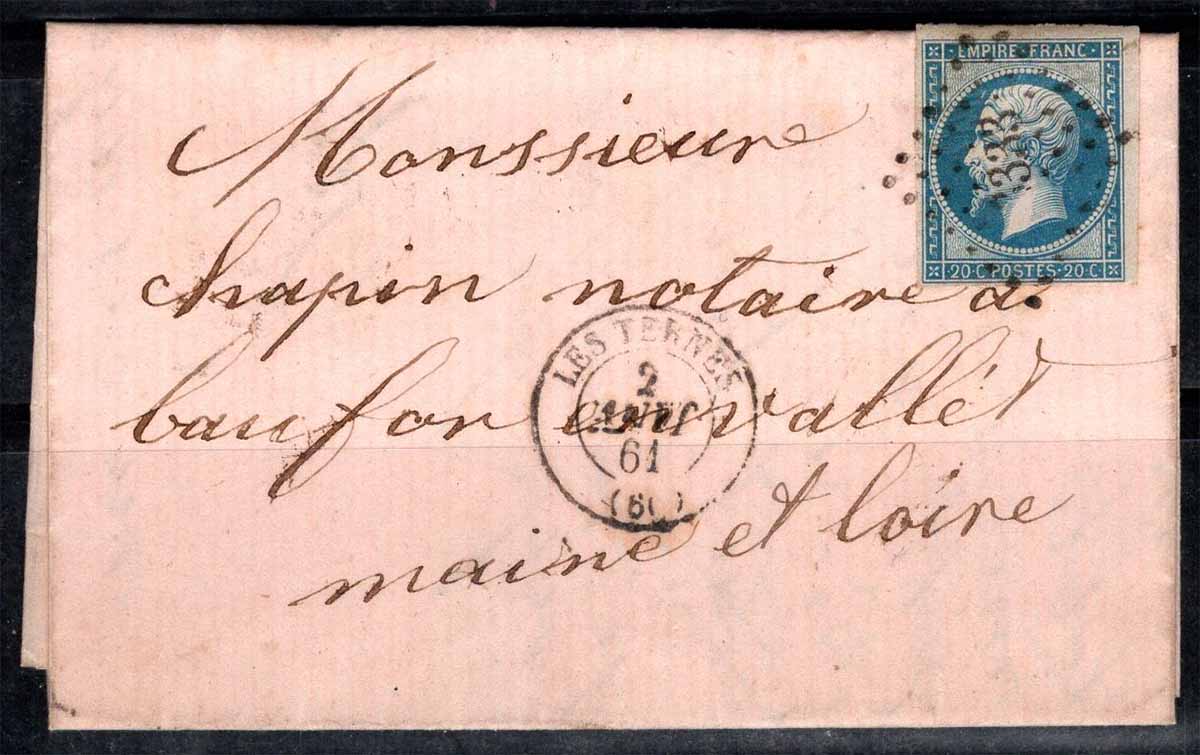 EMPIRE FRANC
3333
20 C POSTES 20 C
Monssieure
chapin notaire a
baufor envallét
maine et loire
LES TERNES
2
61
(60)